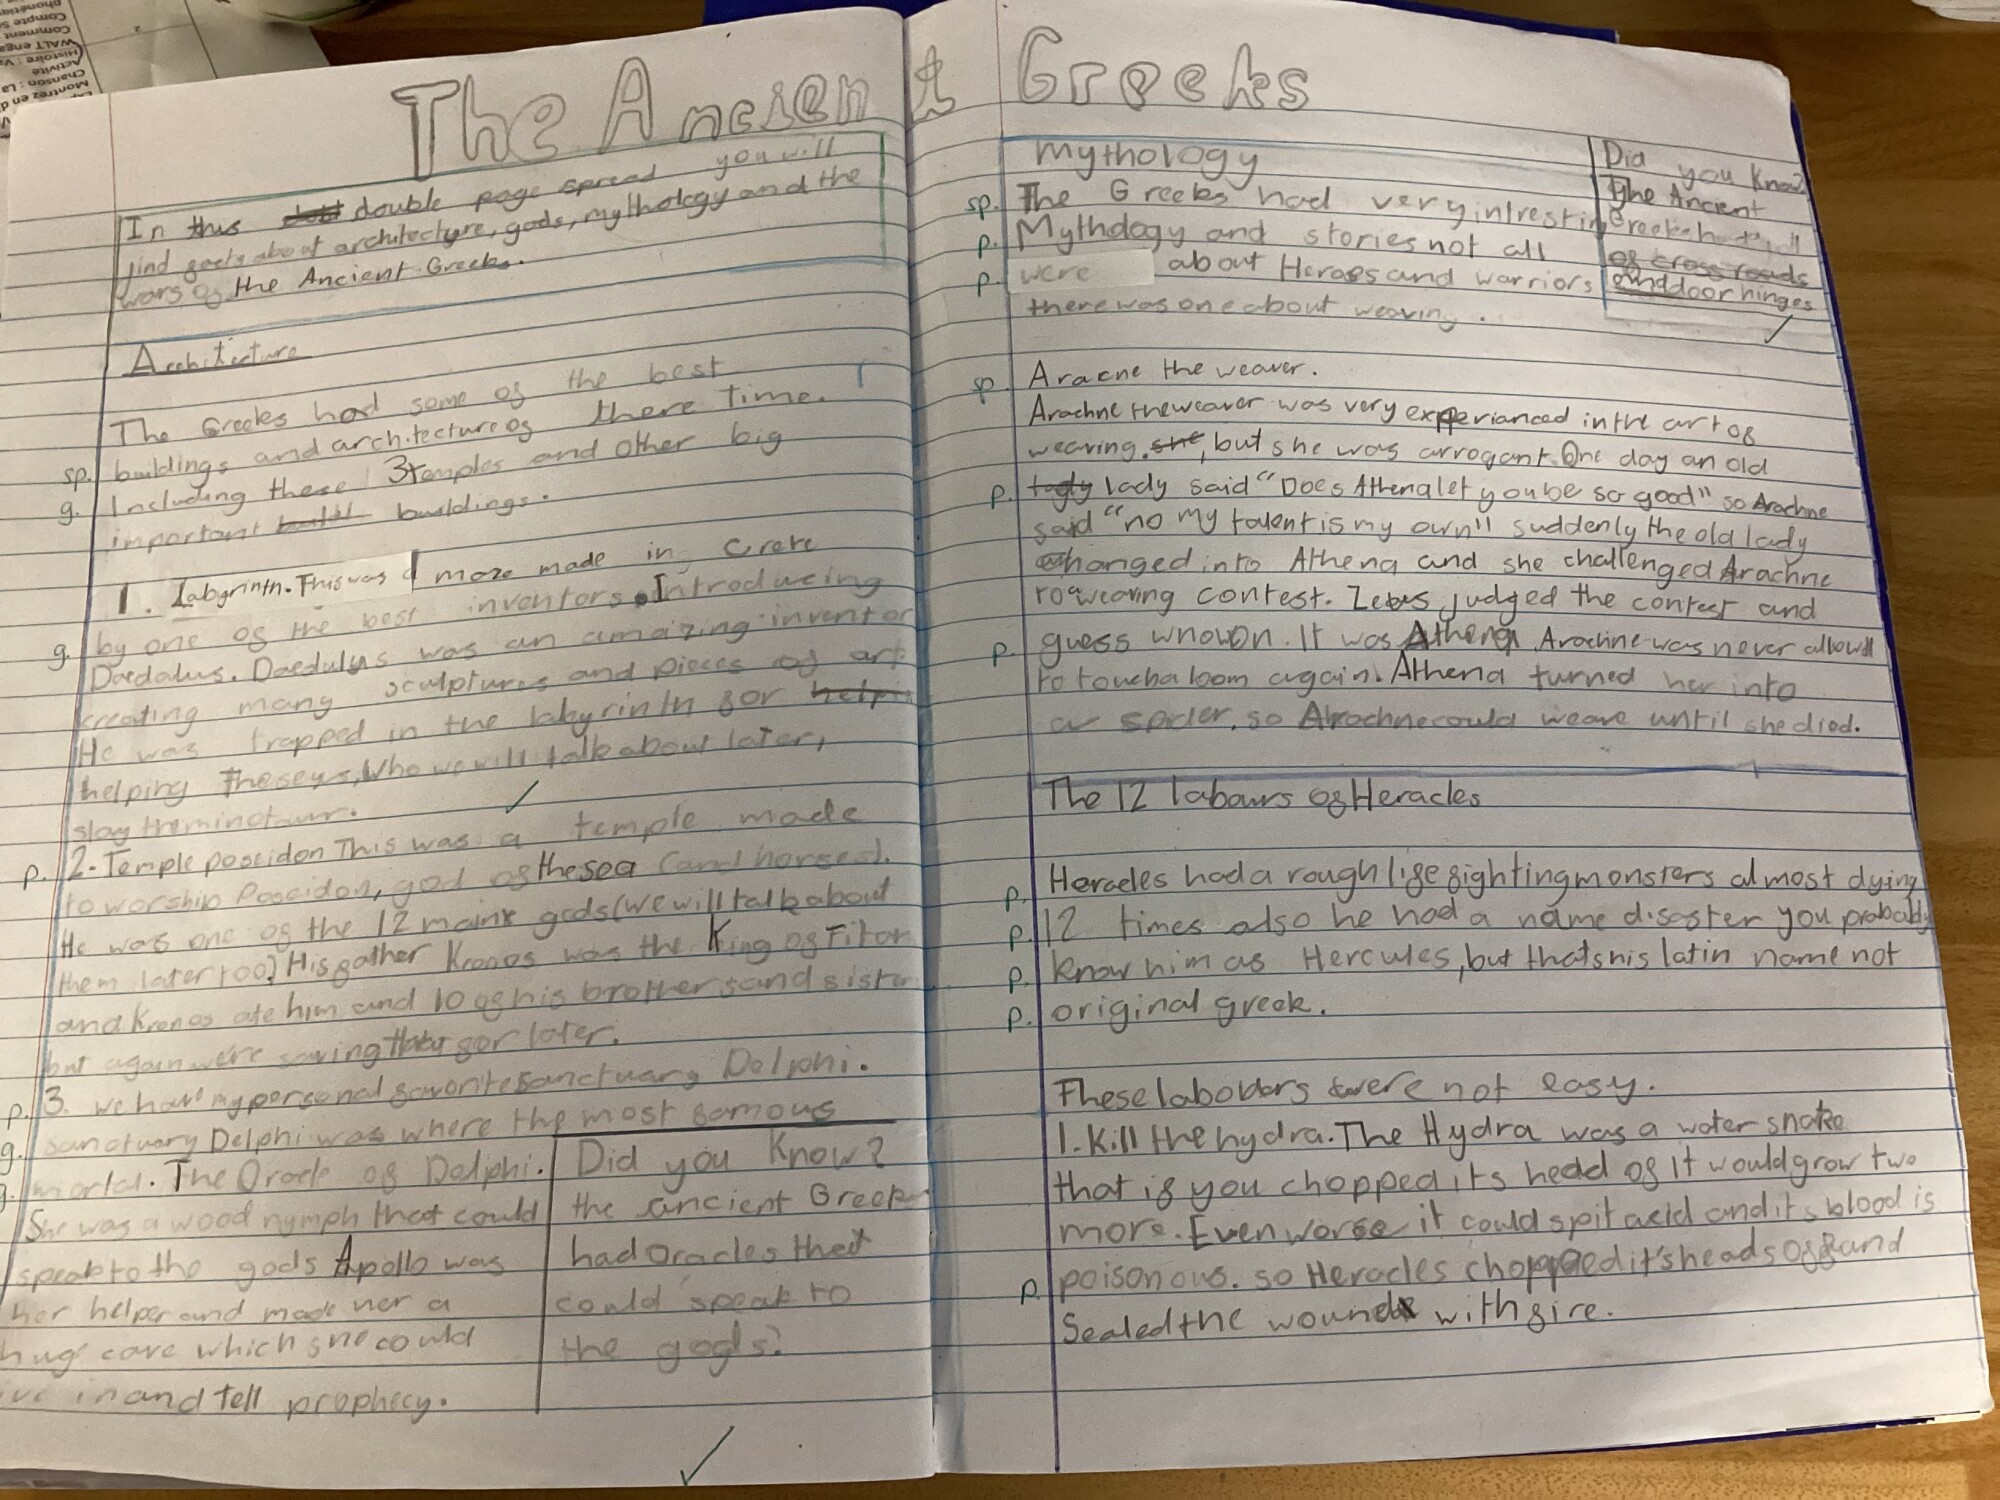 The Ancient Greeks
In this double page spread you will
find facts about architecture, gods, mythology and the
wars of the Ancient Greeks.
Architecture
The Greeks had some of the best
sp. buildings and architecture of there time.
g. Including these 3 temples and other big
important buildings.
1. Labyrinth. This was a maze made in Crete
by one of the best inventors. Introducing
g. Daedalus. Daedulus was an amazing inventor
creating many sculptures and pieces of art
He was trapped in the labyrinth for helpin
helping Theseus, Who we will talk about later,
slay the minotaur.
p. 2. Temple poseidon This was a temple made
to worship Poseidon, god of the sea (and horses).
He was one of the 12 main gods (we will talk about
them later too) His father Kronos was the King of Titan
and Kronos ate him and 10 of his brothers and sister
but again we're saving that for later.
p. 3. we have my personal favorite sanctuary Delphi.
g. sanctuary Delphi was where the most famous
g. mortal. The Oracle of Delphi.
She was a wood nymph that could
speak to the gods Apollo was
her helper and made her a
hug cave which she could
in and tell prophecy.
Did you Know?
the ancient Greek
had oracles that
could speak to
the gods?
mythology
sp. The Greeks had very intrestin
p. Mythology and stories not all
p. were about Heroes and warriors
there was one about weaving.
Did you Know?
The Ancient
Greek
of cross roads
and door hinges
sp. Aracne the weaver.
Arachne the weaver was very experianced in the art of
weaving. she, but she was arrogant. One day an old
p. lady said "Does Athena let you be so good" so Arachne
said "no my talent is my own" suddenly the old lady
changed into Athena and she challenged Arachne
to a weaving contest. Zeus judged the contest and
p. guess who won. It was Athena. Arachne was never allowd
to touch a loom again. Athena turned her into
a spider. so Arachne could weave until she died.
The 12 labours of Heracles
p. Heracles had a rough life fighting monsters almost dying
p. 12 times also he had a name disaster you probably
p. know him as Hercules, but thats his latin name not
p. original greek.
These labours were not easy.
1. Kill the hydra. The Hydra was a water snake
that if you chopped its head of it would grow two
more. Even worse it could spit acid and its blood is
p. poisonous. so Heracles chopped it's heads off and
Sealed the wound with fire.